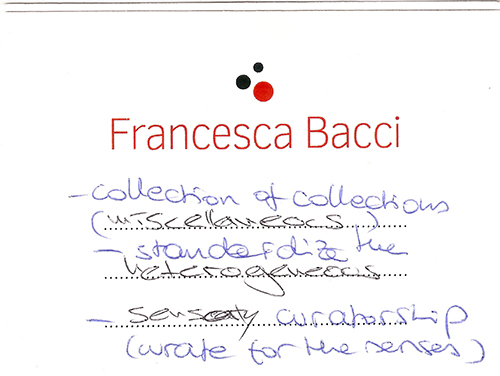 Francesca Bacci
- collection of collections
(miscellaneous)
- standardize the
heterogeneous
- sensory curatorship
(curate for the senses)